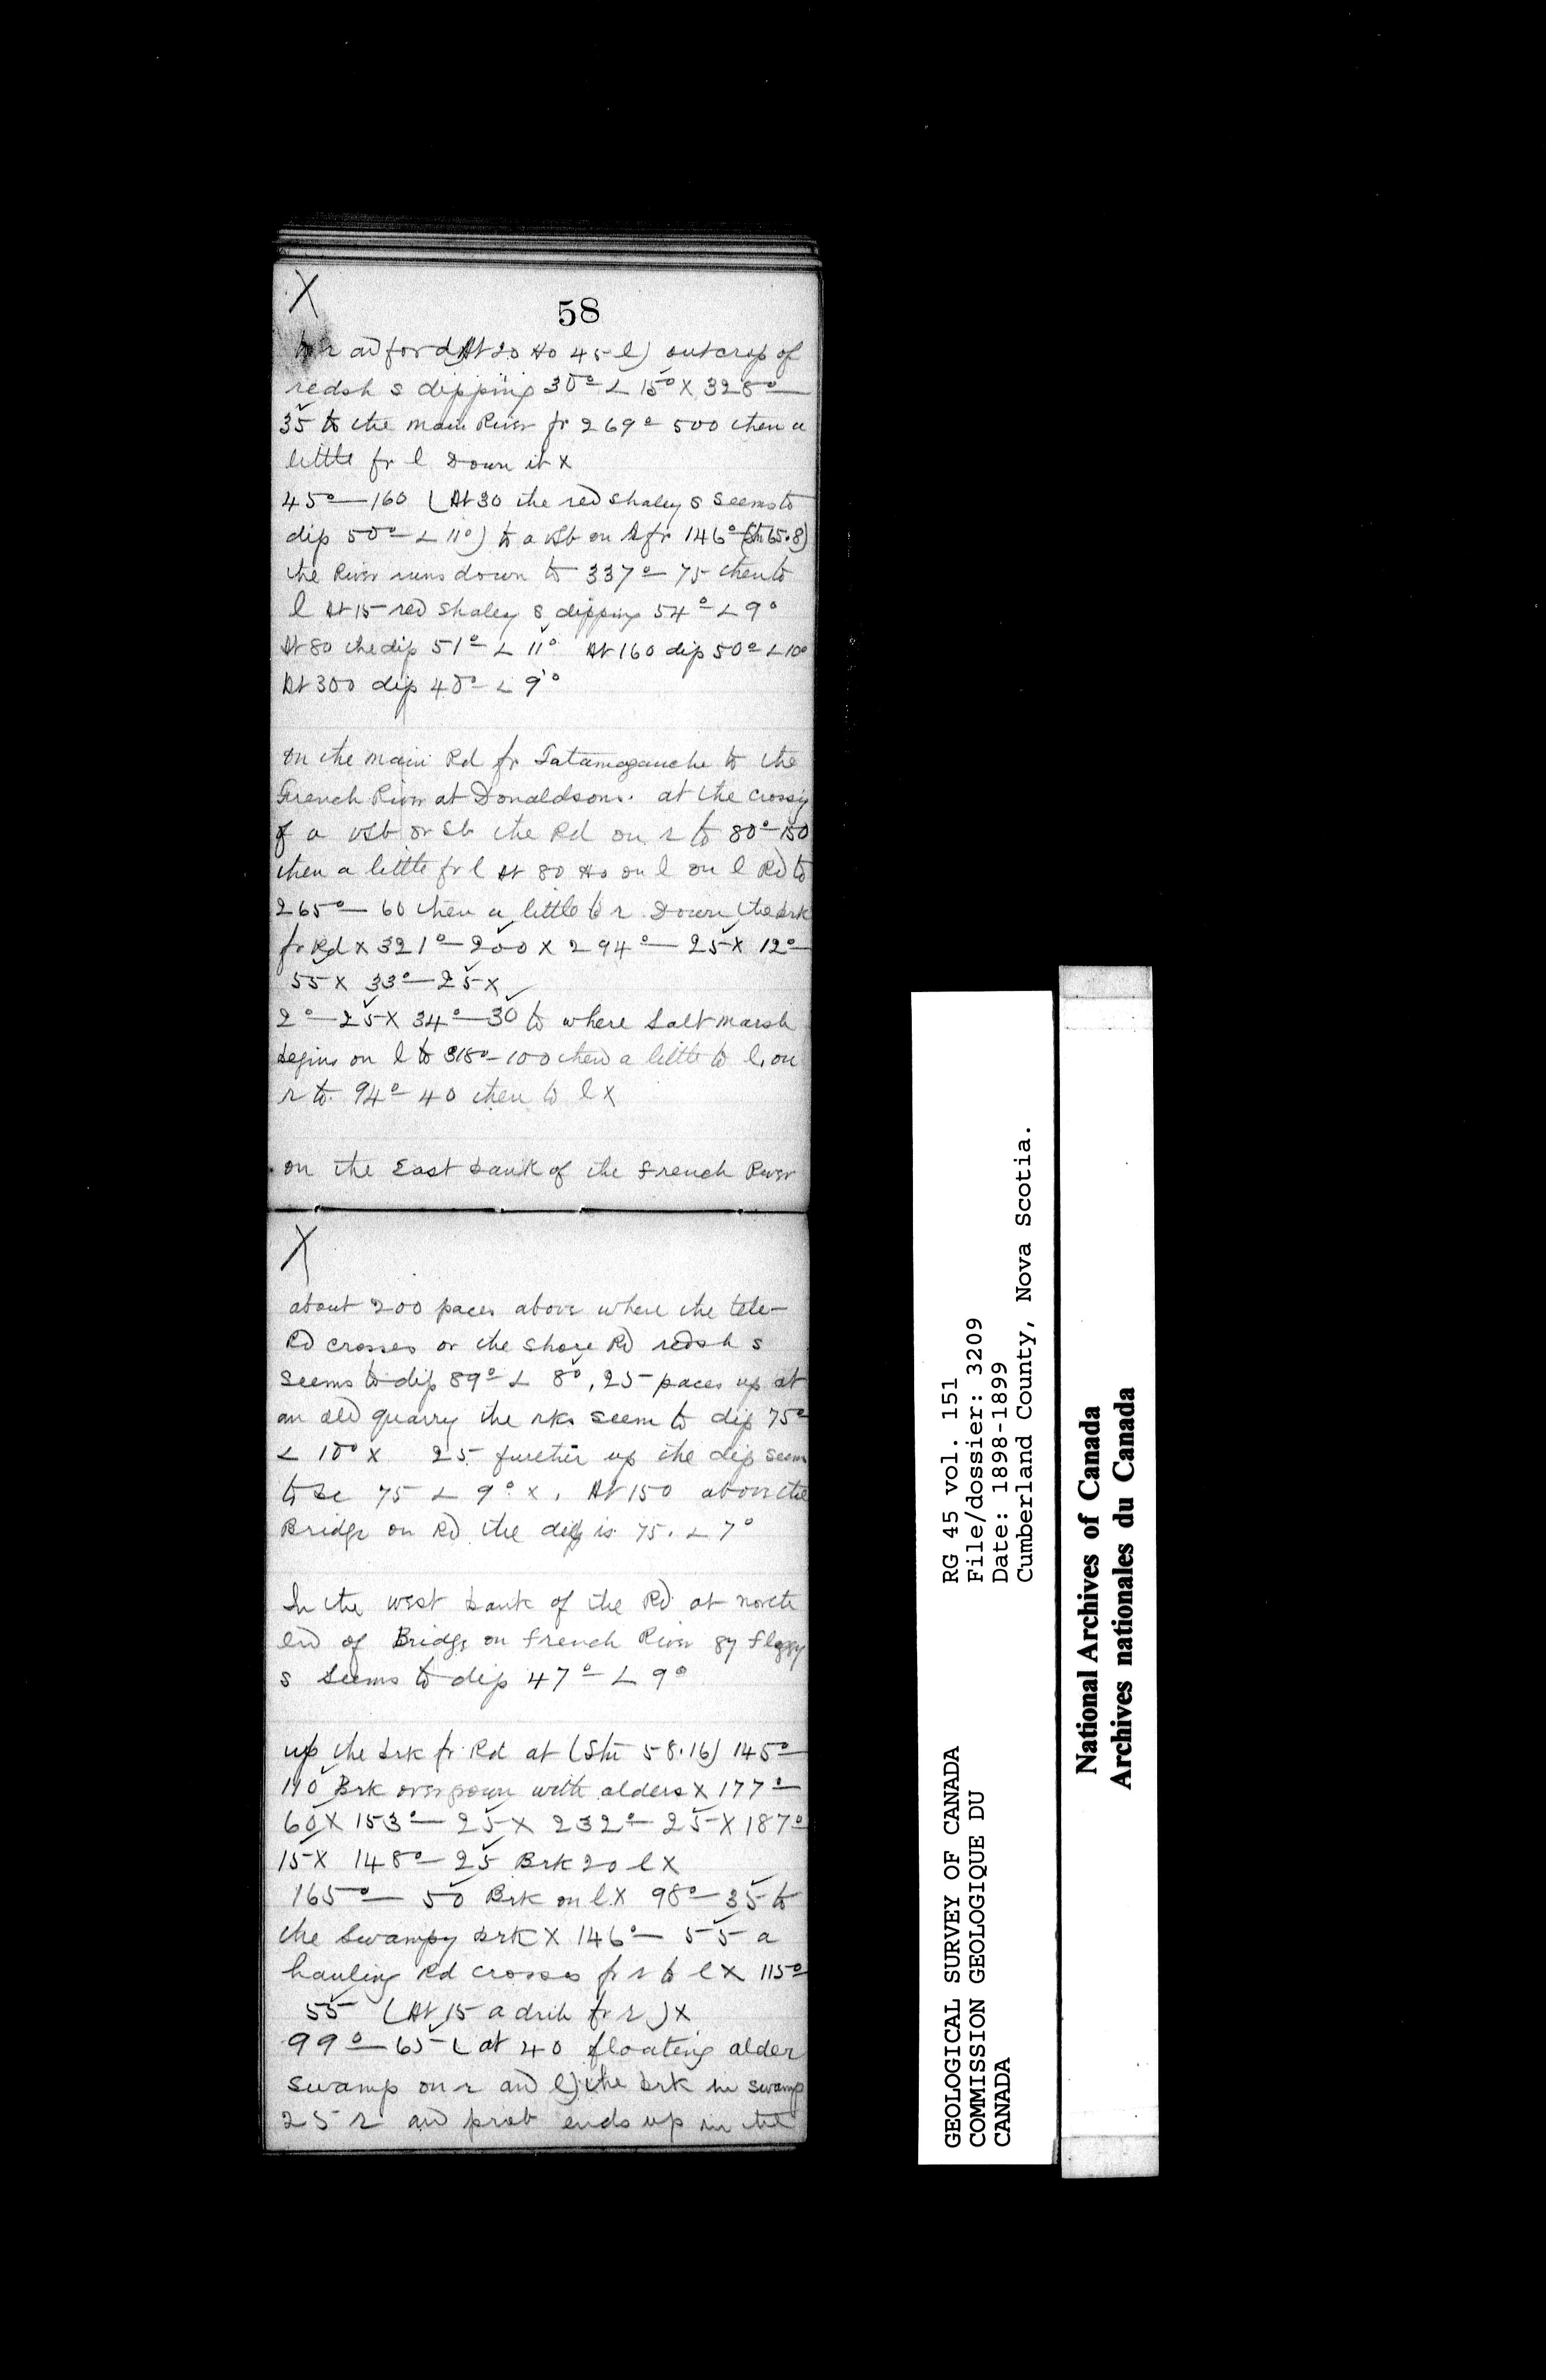 X
58
to r and ford (At 20 Ho 45 l) outcrop of
redsh s dipping 30° ∠ 15° X 328°—
35 to the main River fr 269° 500 then a
little fr l Down it X
45°—160 (At 30 the red shaley s seems to
dip 50° ∠ 11°) to a vsb on r fr 146° (Stn 65.8)
the River runs down to 337° 75 then to
l At 15 red shaley s dipping 54° ∠ 9°
At 80 the dip 51° ∠ 11° At 160 dip 50° ∠ 10°
At 300 dip 40° ∠ 9°
On the main Rd fr Tatamagouche to the
French River at Donaldsons. at the crossing
of a vsb or sb the Rd on r to 80°—150
then a little fr l At 80 Ho on l on l Rd to
265°—60 then a little to r Down the brk
fr Rd X 321°—200 X 294°—25 X 12°—
55 X 33°—25 X
2°—25 X 34°—30 to where Salt marsh
begins on l to 318°—100 then a little to l, on
r to 94°—40 then to l X
on the East bank of the French River
X
about 200 paces above where the tele-
Rd crosses or the shore Rd redsh s
seems to dip 89° ∠ 8°, 25 paces up at
an old quarry the rks seem to dip 75°
∠ 10° X 25 further up the dip seem
to be 75 ∠ 9° X. At 150 above the
Bridge on Rd the dip is 75. ∠ 7°
In the west bank of the Rd at north
end of Bridge on French River gy flaggy
s seems to dip 47° ∠ 9°
up the brk fr Rd at (Stn 58.16) 145°—
110 Brk overgrown with alders X 177°—
60 X 153°—25 X 232°—25 X 187°
15 X 148°—25 Brk 20 l X
165°—50 Brk on l X 98°—35 to
the Swampy brk X 146°—55 a
hauling Rd crosses fr r to l X 115°
55 (At 15 a drib fr r) X
99°—65 (at 40 floating alder
swamp on r and l) the brk in swamp
25 r and prob ends up in the
RG 45 vol. 151
File/dossier: 3209
Date: 1898-1899
Cumberland County, Nova Scotia.
GEOLOGICAL SURVEY OF CANADA
COMMISSION GEOLOGIQUE DU
CANADA
National Archives of Canada
Archives nationales du Canada